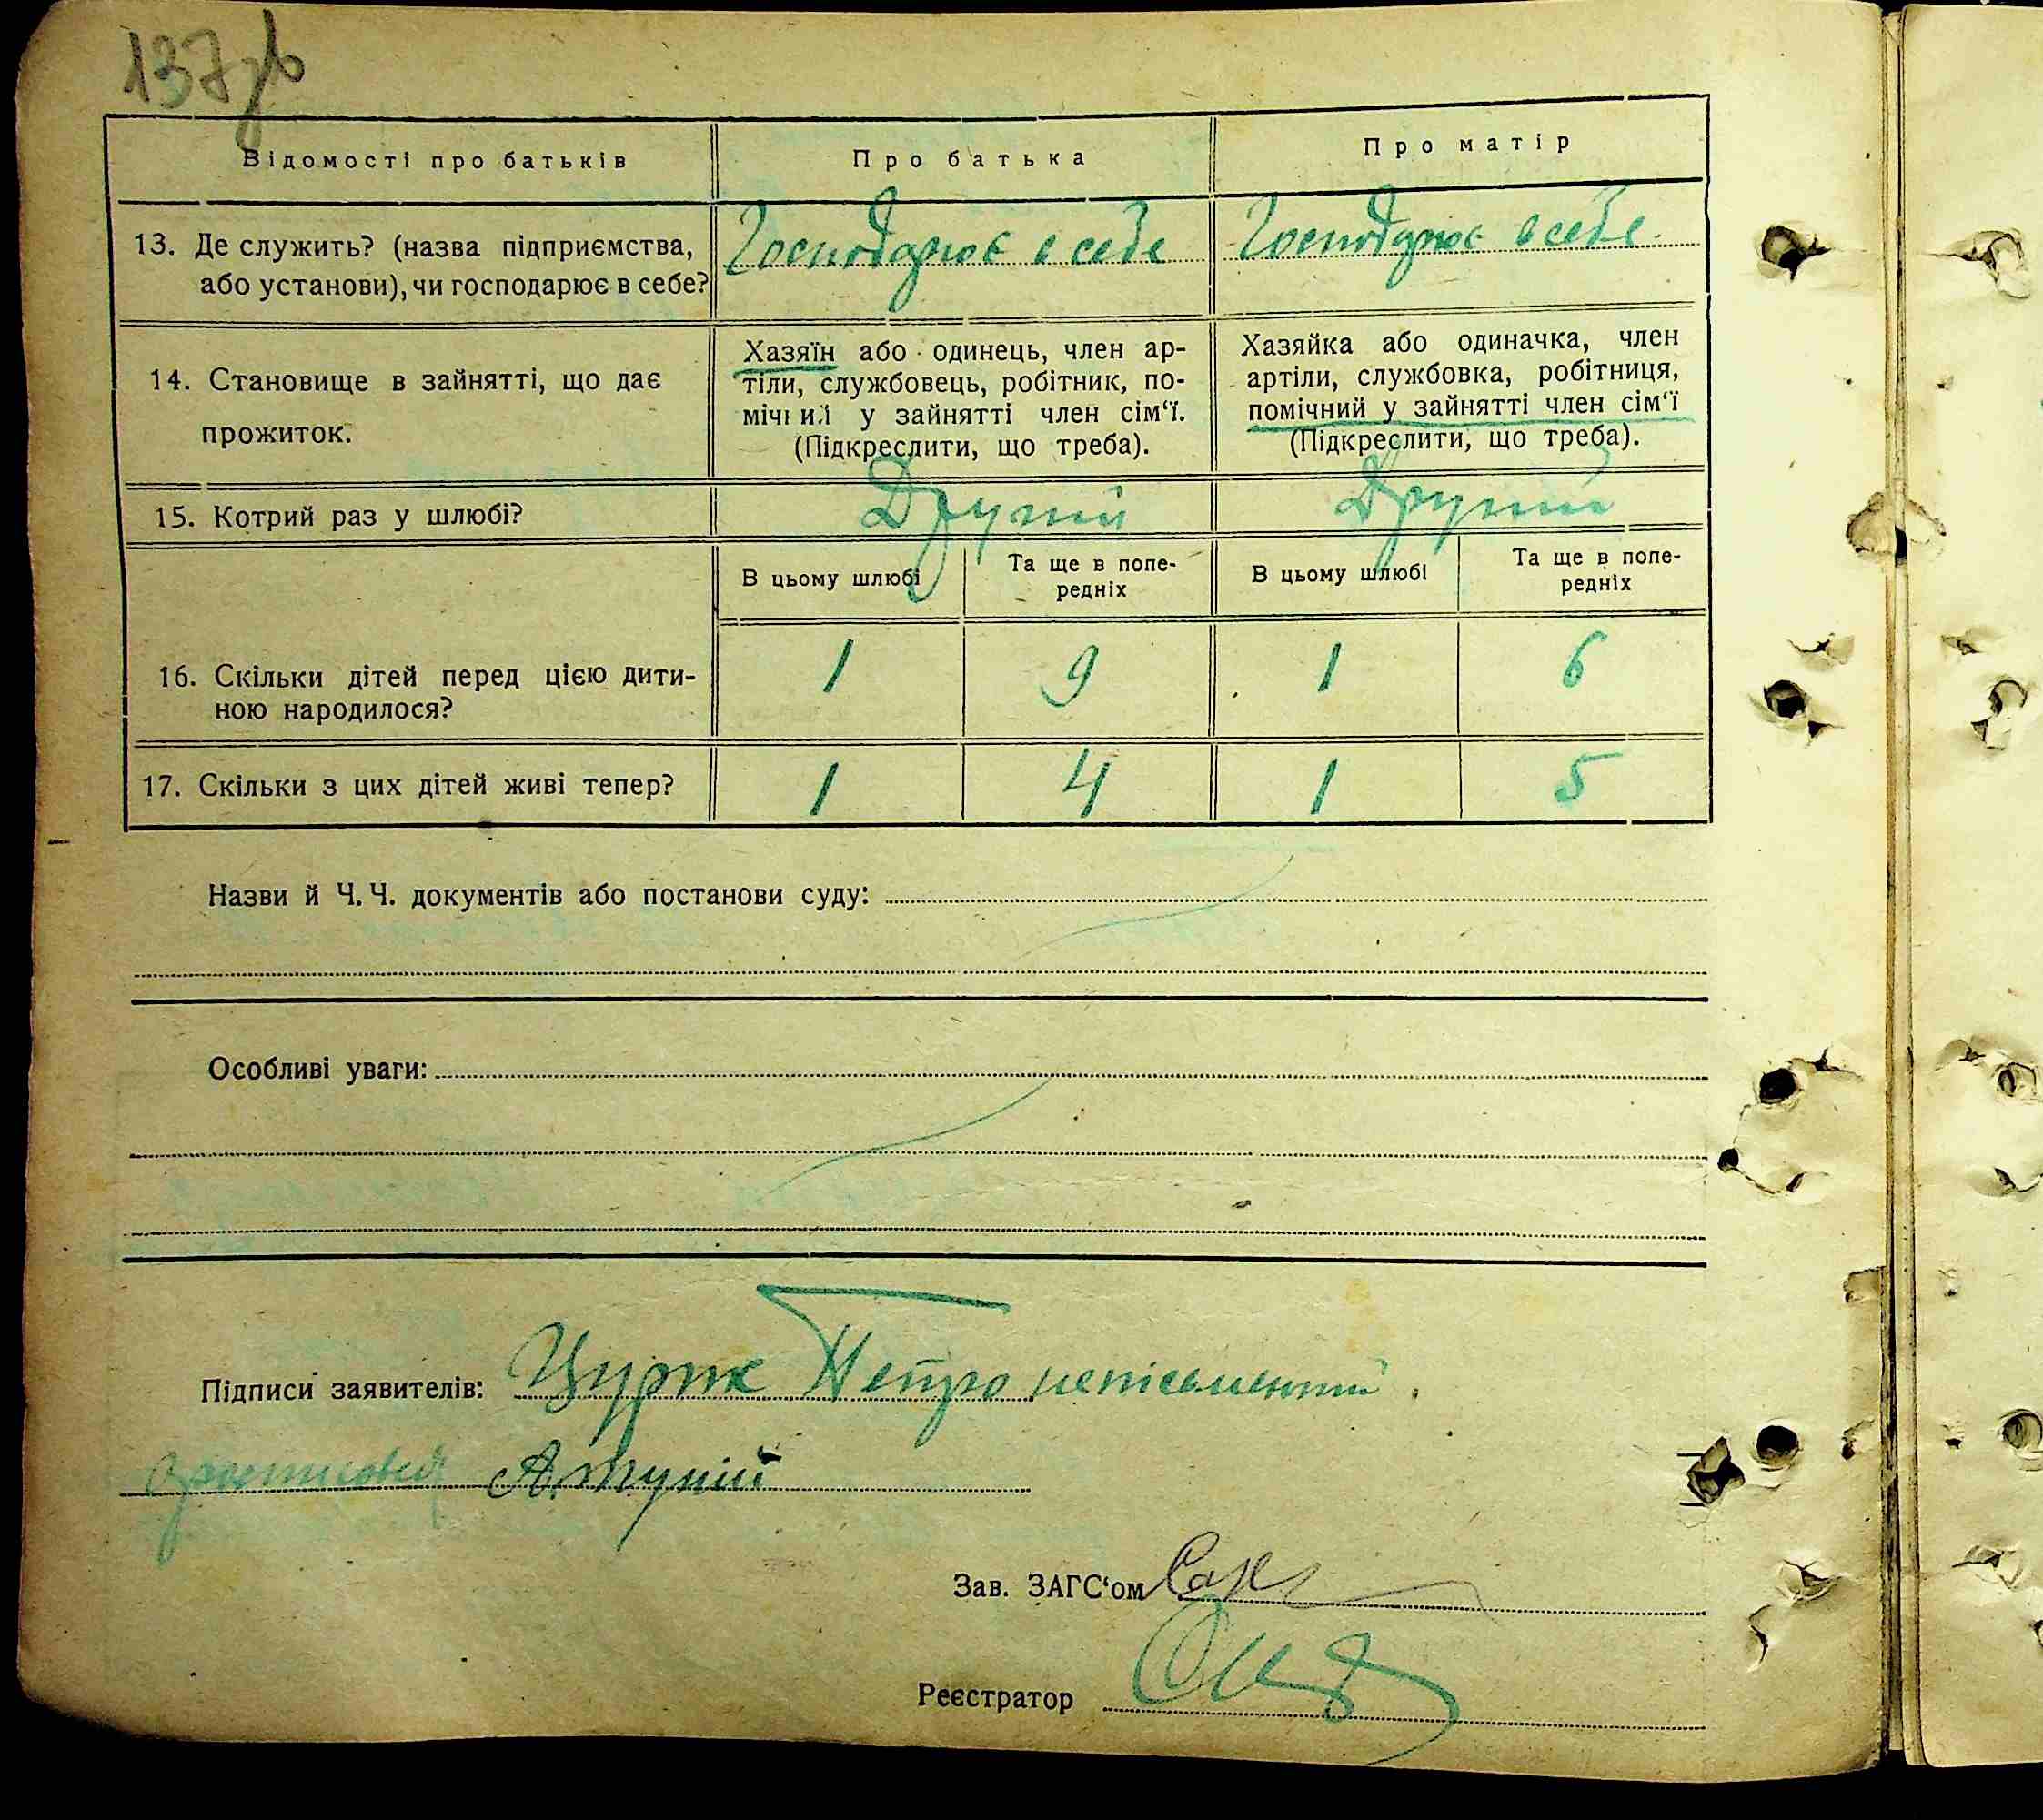 137зв
Відомості про батьків
Про батька
Про матір
13. Де служить? (назва підприємства,
або установи), чи господарює в себе?
Господарює в себе
Господарює в себе
14. Становище в зайнятті, що дає
прожиток.
Хазяїн або одинець, член ар-
тіли, службовець, робітник, по-
мічний у зайнятті член сім'ї.
(Підкреслити, що треба).
Хазяйка або одиначка, член
артіли, службовка, робітниця,
помічний у зайнятті член сім'ї
(Підкреслити, що треба).
15. Котрий раз у шлюбі?
Другий
Другий
В цьому шлюбі
Та ще в попе-
редніх
В цьому шлюбі
Та ще в попе-
редніх
16. Скільки дітей перед цією дити-
ною народилося?
1
9
1
6
17. Скільки з цих дітей живі тепер?
1
4
1
5
Назви й Ч. Ч. документів або постанови суду:
Особливі уваги:
Підписи заявителів: Цурик Петро неписьменний
Зав. ЗАГС'ом
Реєстратор